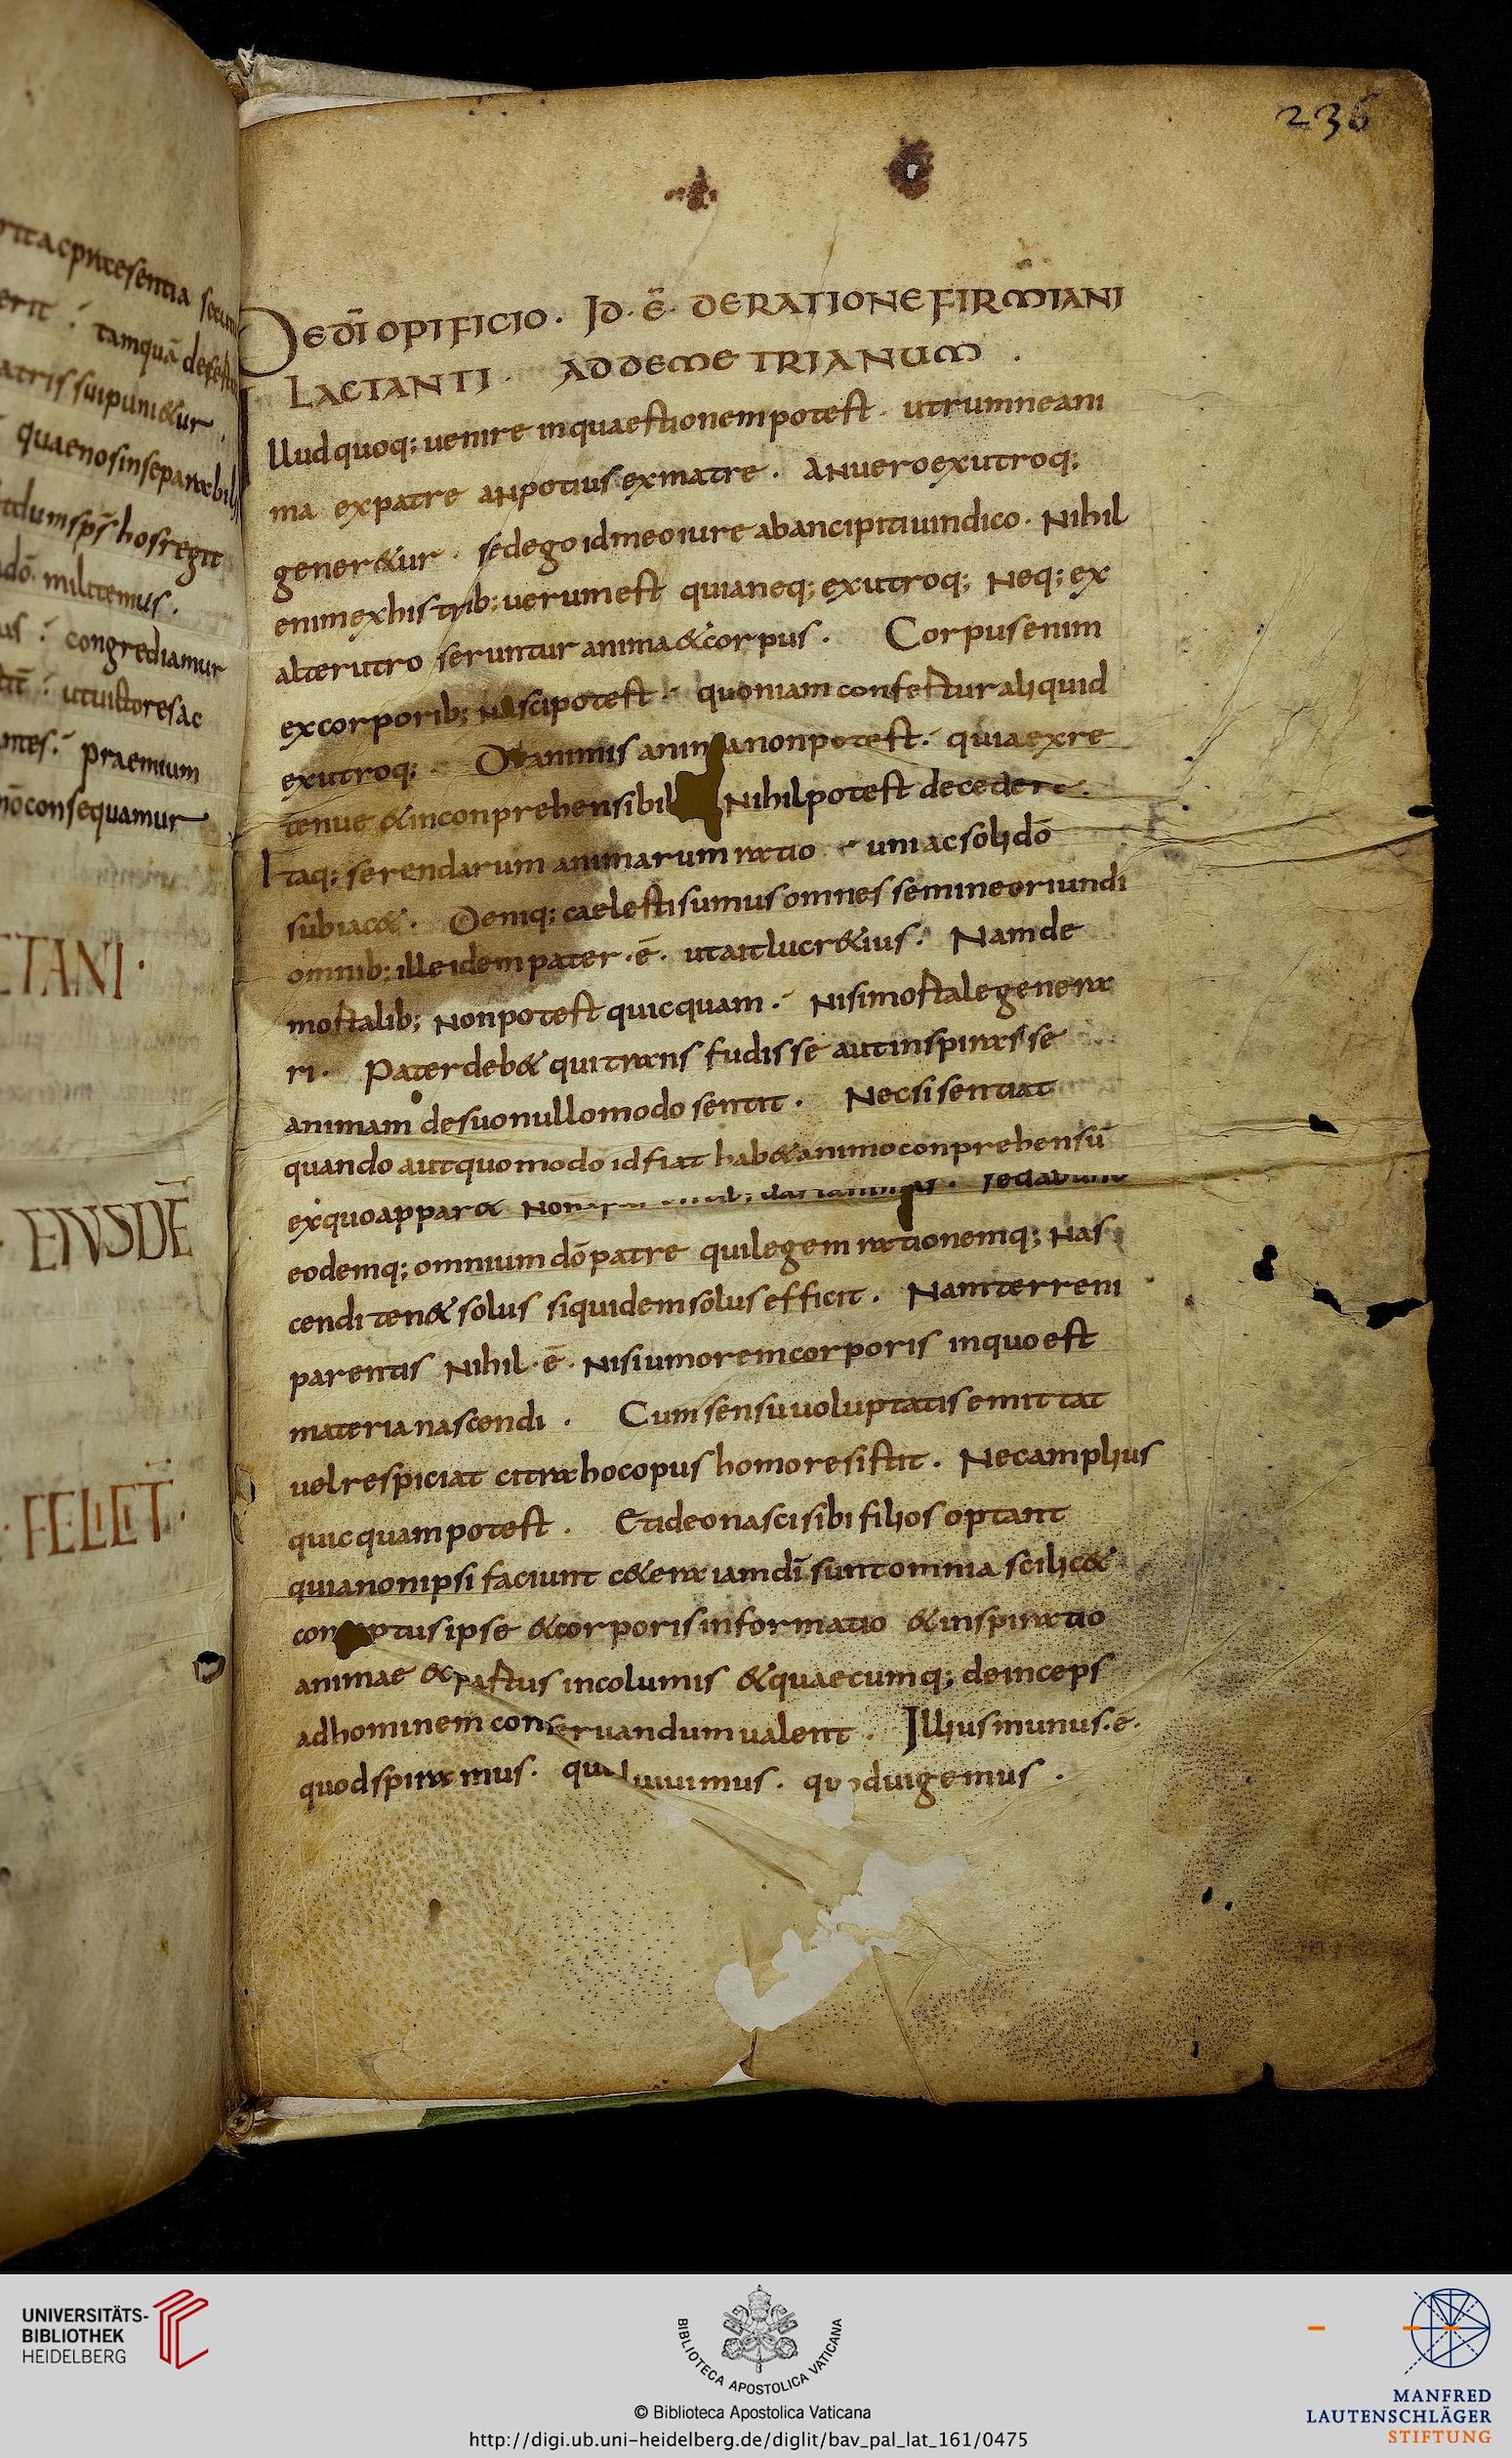 ritacpraesentia secun
erit tamquā defectu
atris suipuni&ur
quaenosinseparabil
dumsps̄ hosregit
dō. militemus.
congrediamur
utuictoresac
praemium
nōconsequamur
CTANI.
EIVSDĒ
FELICIT.
236
DEDĪ OPIFICIO. ID. Ē. DERATIONEFIRMIANI
LACTANTI. ADDEMETRIANUM.
Illudquoq; uenire inquaestionempotest. utrumneani
ma expatre anpotiusexmatre. Anueroexutroq;
gener&ur. sedegoidmeoiure abancipitiuindico. Nihil
enimexhistrib; uerumest quianeq; exutroq; Neq; ex
alterutro seruntur anima&corpus. Corpusenim
excorporib; nascipotest. quoniam confecturaliquid
exutroq;. Deanimis animanonpotest. quiaexre
tenue &inconprehensibil Nihilpotest decedere.
Itaq; serendarum animarumratio uniacsolidō
subiac&. Deniq; caelestisumusomnes semineoriundi
omnib; illeidempater. ē. utaitlucr&ius. Namde
mortalib; Nonpotest quicquam. Nisimortalegenera
ri. Paterdeb& quitrans fudisse autinspirasse
animam desuonullomodo sentit. Necsisentiat
quando autquomodo idfiat hab&animoconprehensū
exquoappar& Non
eodemq; omnium dōpatre quilegem rationemq; Nas
cendi ten& solus siquidemsolusefficit. Namterreni
parentis Nihil. ē. Nisiumoremcorporis inquoest
materianascendi. Cumsensuuoluptatisemittat
uelrespiciat citrahocopus homoresistit. Necamplius
quicquampotest. Etideonascisibi filiosoptant
quianonipsi faciunt c&era iamdī suntomnia scilic&
conceptusipse &corporisinformatio &inspiratio
animae &partus incolumis &quaecumq; deinceps
adhominem conseruandumualent. Illiusmunus. ē.
quodspiramus. quoduiuimus. quoduigemus.
UNIVERSITÄTS-
BIBLIOTHEK
HEIDELBERG
BIBLIOTECA APOSTOLICA VATICANA
© Biblioteca Apostolica Vaticana
http://digi.ub.uni-heidelberg.de/diglit/bav_pal_lat_161/0475
MANFRED
LAUTENSCHLÄGER
STIFTUNG